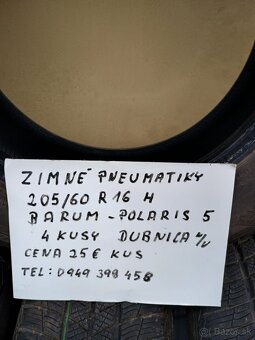 ZIMNÉ PNEUMATIKY
205/60 R 16 H
BARUM - POLARIS 5
4 KUSY DUBNICA N/V
CENA 25€ KUS
TEL: 0949 398 458
© Bazar.sk